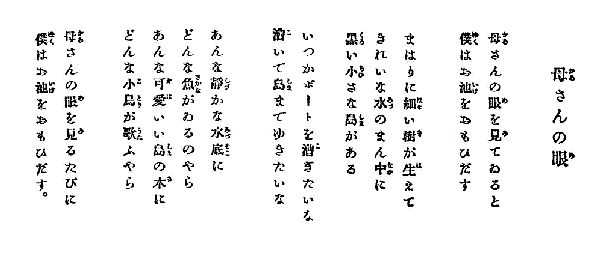 母さんの眼
母さんの眼を見てゐると
僕はお池をおもひだす
まはりに細い樹が生えて
きれいな水のまん中に
黒い小さな島がある
いつかボートを漕ぎたいな
漕いで島までゆきたいな
あんな靜かな水底に
どんな魚がゐるのやら
あんな可愛いい島の木に
どんな小鳥が歌ふやら
母さんの眼を見るたびに
僕はお池をおもひだす。